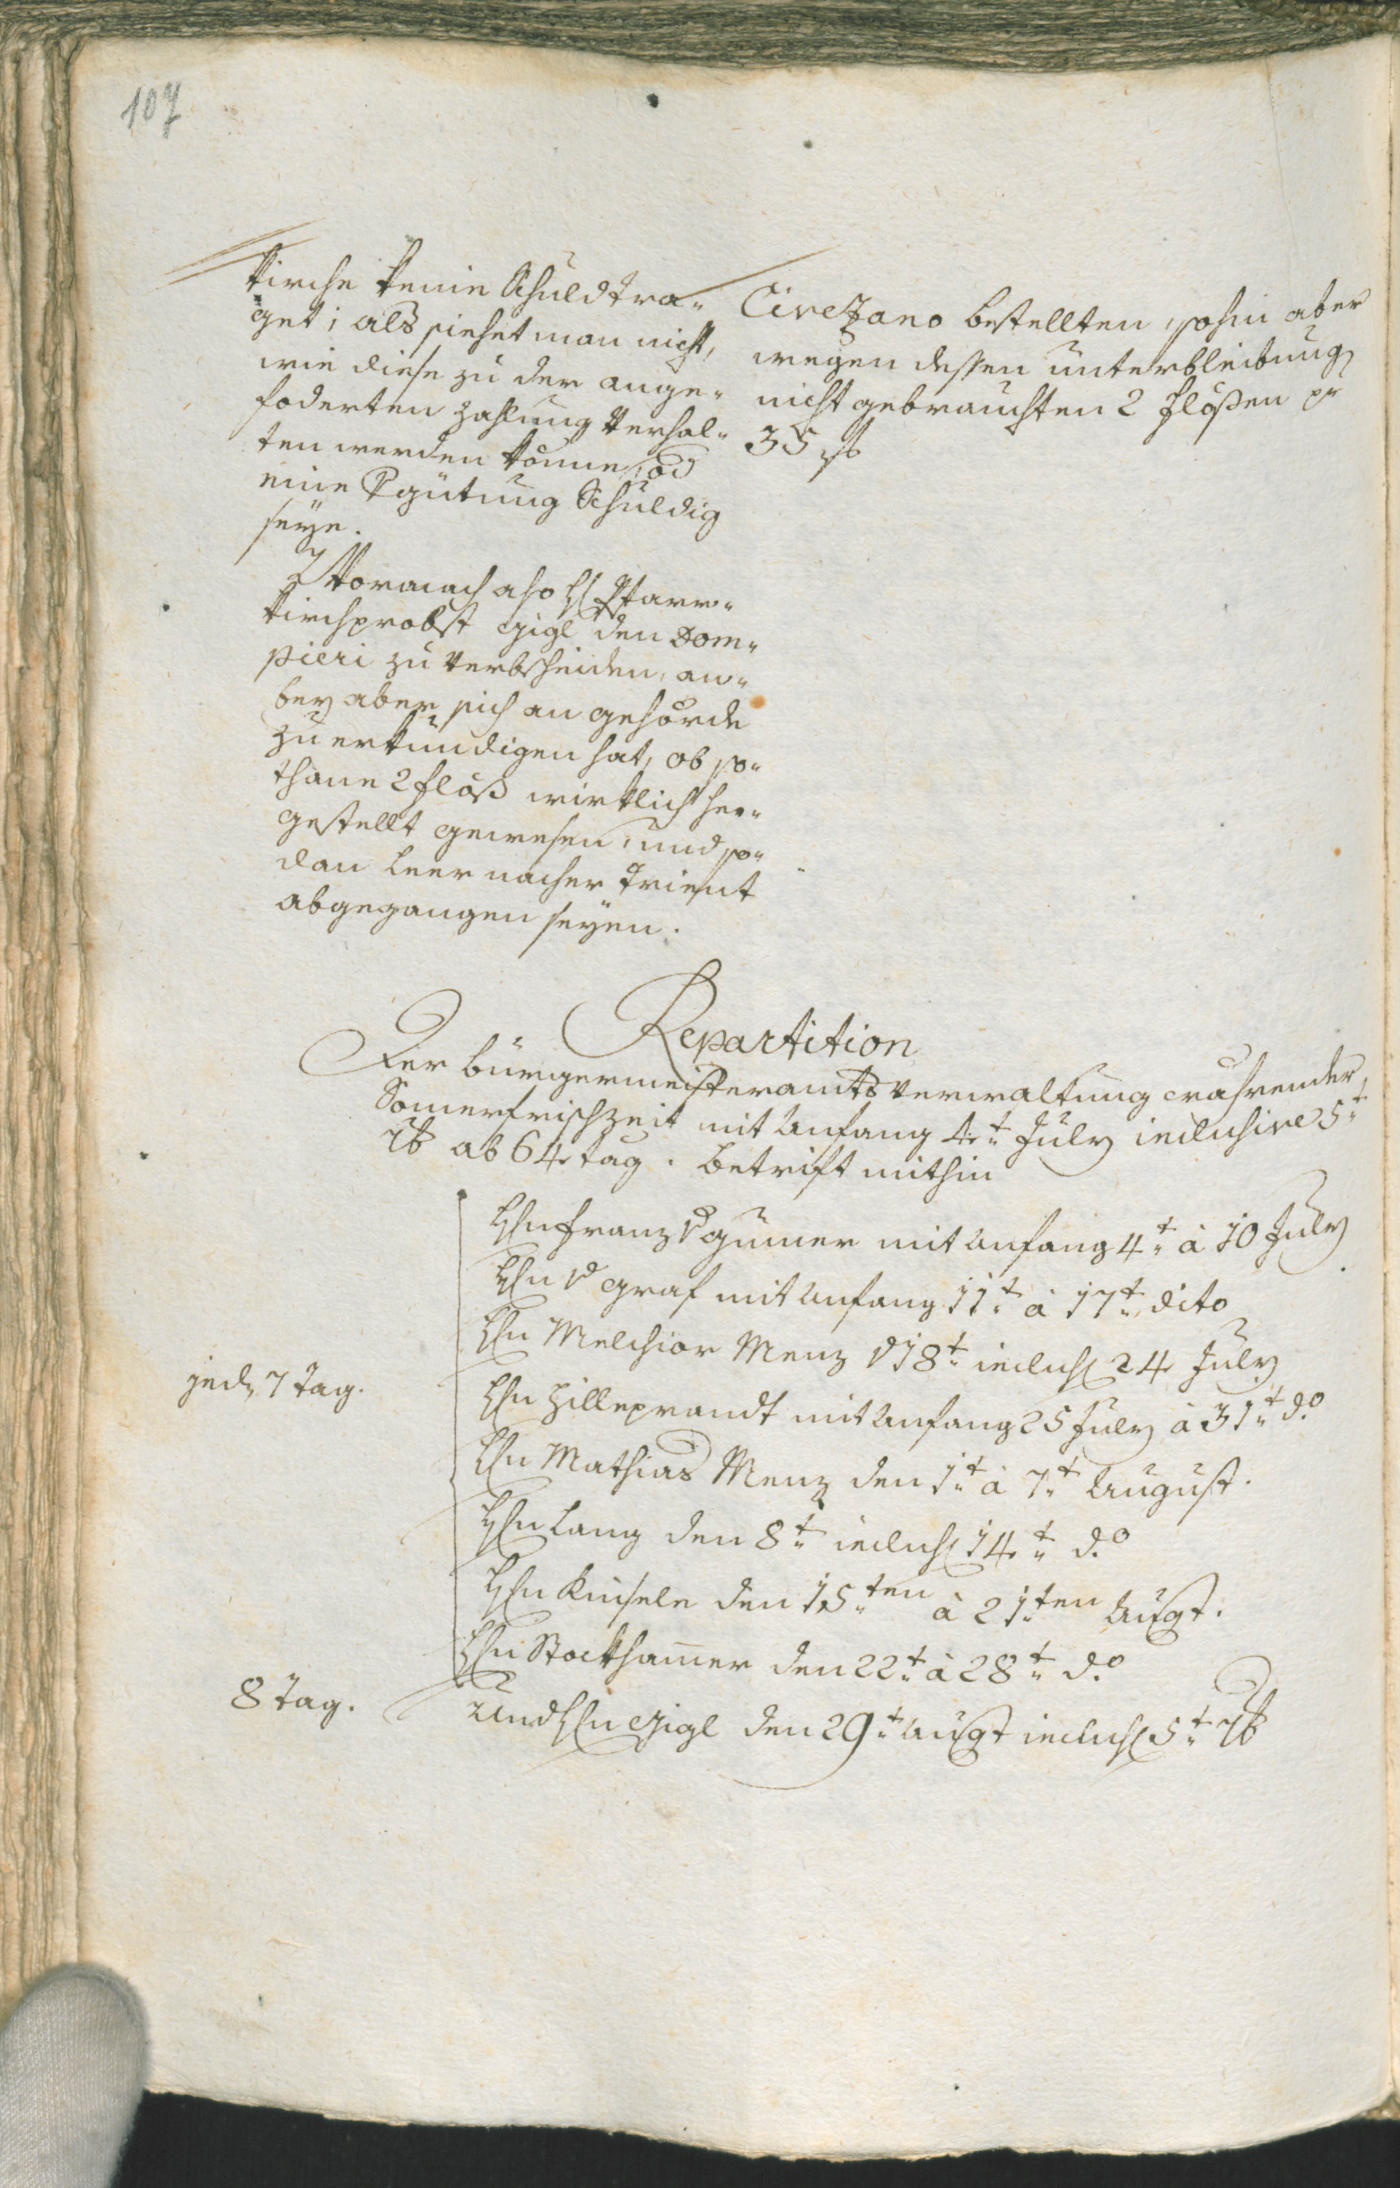 107
Kirche keine Schuld tra-
get; als siehet man nicht,
wie diese zu der ange-
foderten Zahlung verhal-
ten werden könne, od
eine Vgütung schuldig
seye.
Wornach also H Pfarr-
kirchprobst Gigl den Dom-
pieri zu verbscheiden, an-
bey aber sich an gehörde
zu erkundigen hat, ob so-
thane 2 Flöß wirklich her-
gestellt gewesen, und so-
dan leer nacher Trient
abgegangen seyen.
Civezano bestellten, sohin aber
wegen dessen unterbleibung
nicht gebrauchten 2 Flößen pr
35 f
Repartition
Der burgermeisteramts verwaltung währender
Somerfrischzeit mit Anfang 4t July inclusive 5t
7b ab 64 tag. betrift mithin
Hn Franz v gumer mit Anfang 4t à 10 July
Hn v Graf mit Anfang 11t à 17t dito
Hn Melchior Menz v 18t inclus 24 July
jed 7 tag.
Hn Hilleprandt mit Anfang 25 July à 31t do
Hn Mathias Menz den 1t à 7t August.
Hn Lang den 8t inclus 14t do
Hn Kinsele den 15ten à 21ten Augt.
Hn Stockhamer den 22t à 28t do
8 tag.
Und Hn Gigl den 29t Augt inclus 5t 7b